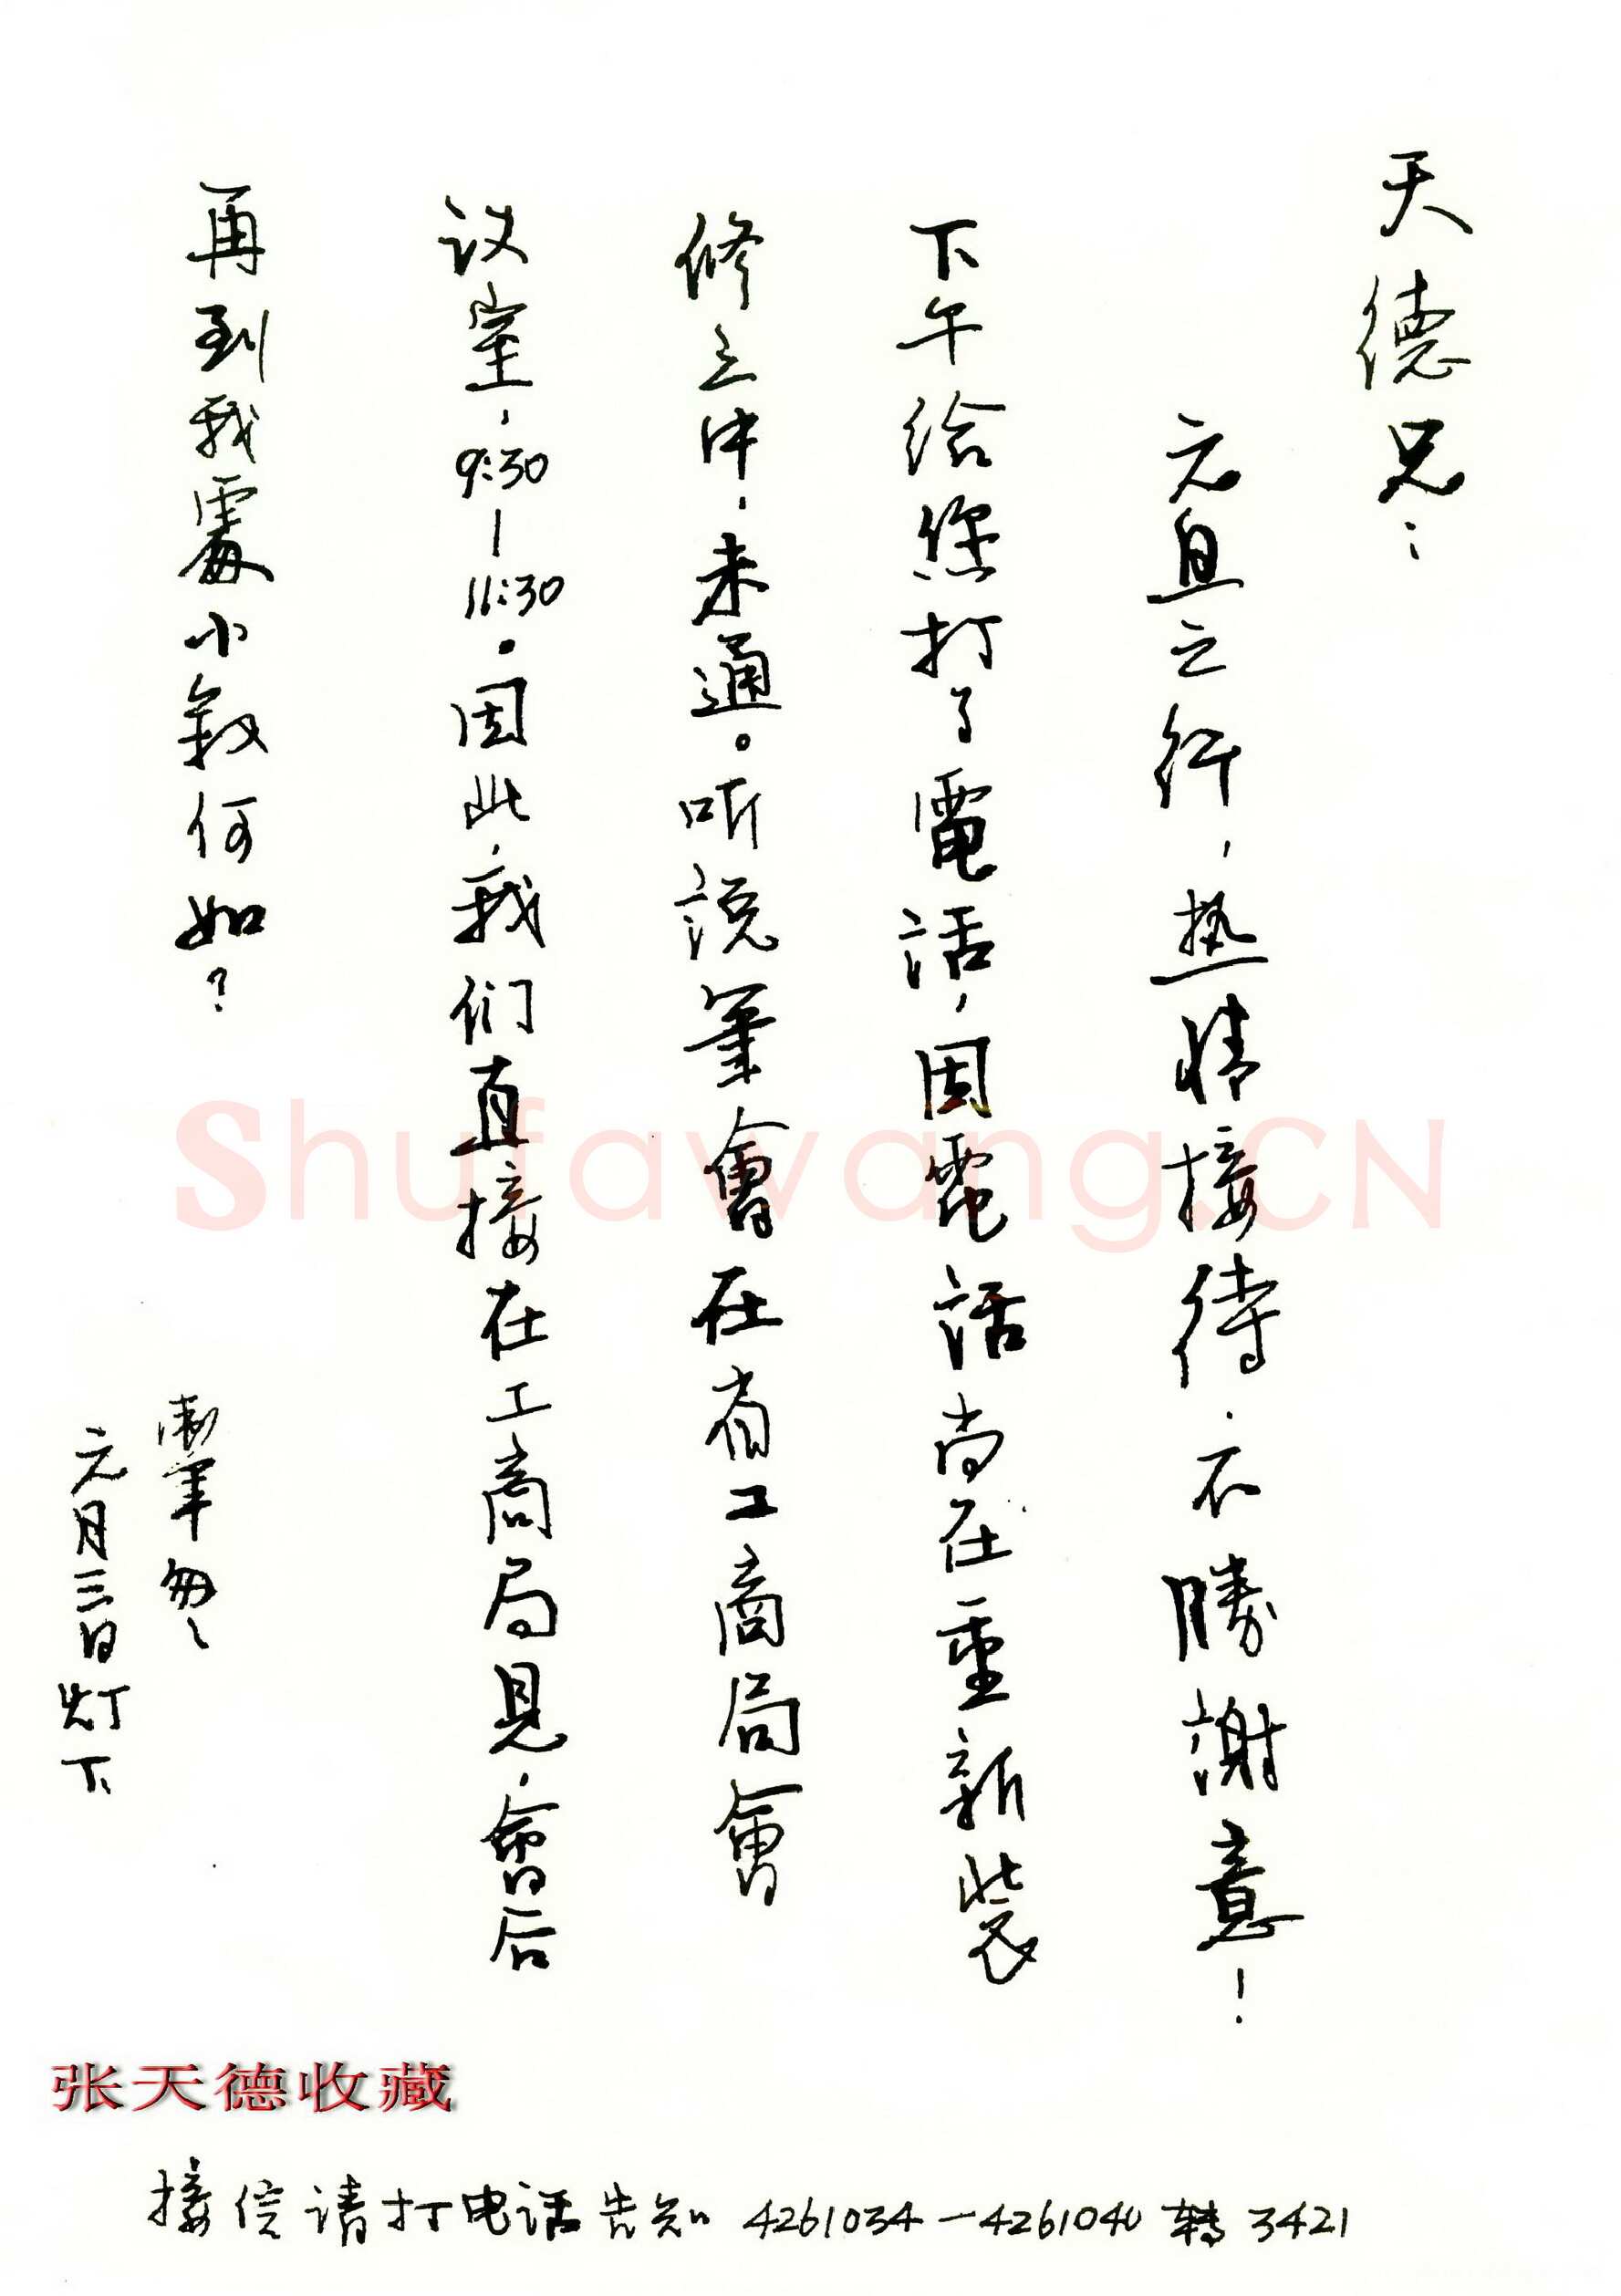 天德兄：
元旦之行，热情接待，不勝謝意！
下午给您打了電話，因電話尚在重新装
修之中，未通。听説筆會在省工商局會
议室，9:30—11:30。因此，我们直接在工商局見，會后
再到我處小敘何如？
筆匆匆
元月三日灯下
张天德收藏
接信请打电话告知 4261034—4261040 轉 3421
Shufawang.CN